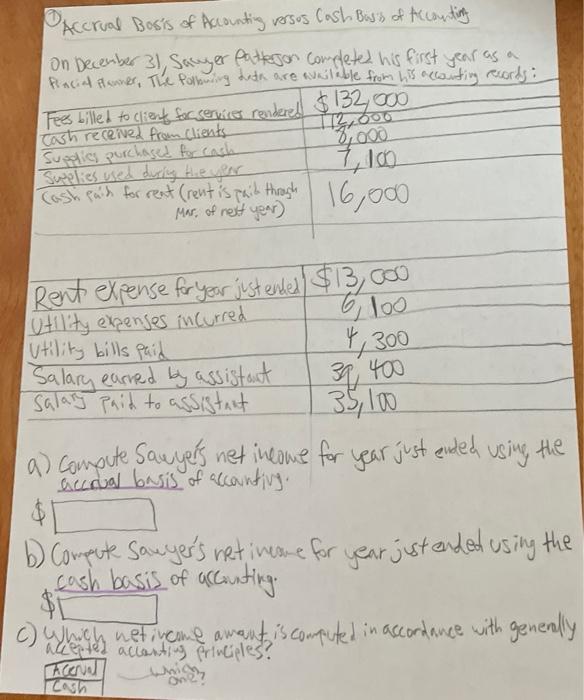 ① Accrual Basis of Accounting versus Cash Basis of Accounting
On December 31, Sawyer Patterson completed his first year as a
The following data are available from his accounting records:
Fees billed to clients for services rendered $132,000
Cash received from clients 112,000
Supplies purchased for cash 8,000
Supplies used during the year 7,100
Cash paid for rent (rent is paid through 16,000
Mar. of next year)
Rent expense for year just ended $13,000
Utility expenses incurred 6,100
Utility bills paid 4,300
Salary earned by assistant 400
Salary paid to assistant 35,100
a) Compute Sawyer's net income for year just ended using the
accrual basis of accounting.
$
b) Compute Sawyer's net income for year just ended using the
cash basis of accounting.
$
c) Which net income amount is computed in accordance with generally
accepted accounting principles?
Accrual which
Cash one?